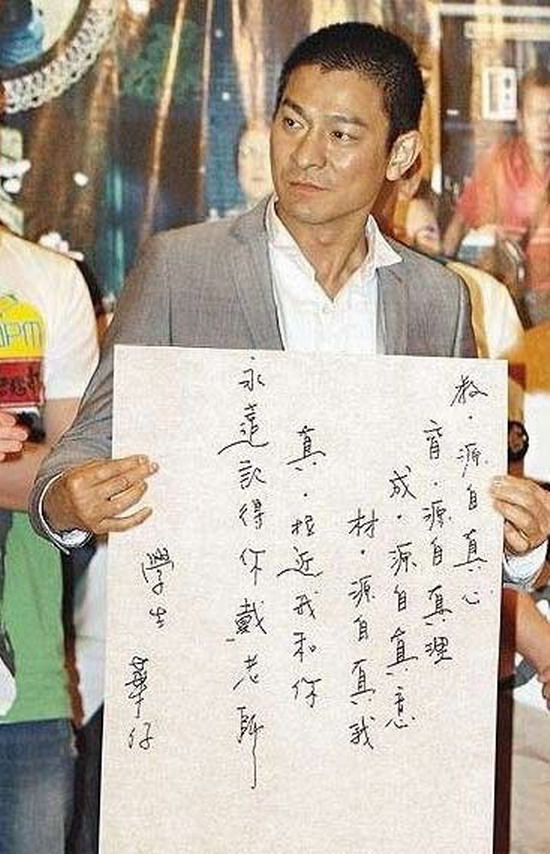 教·源自真心
育·源自真理
成·源自真意
材·源自真我
真·拉近我和你
永遠記得你戴老師
學生 華仔